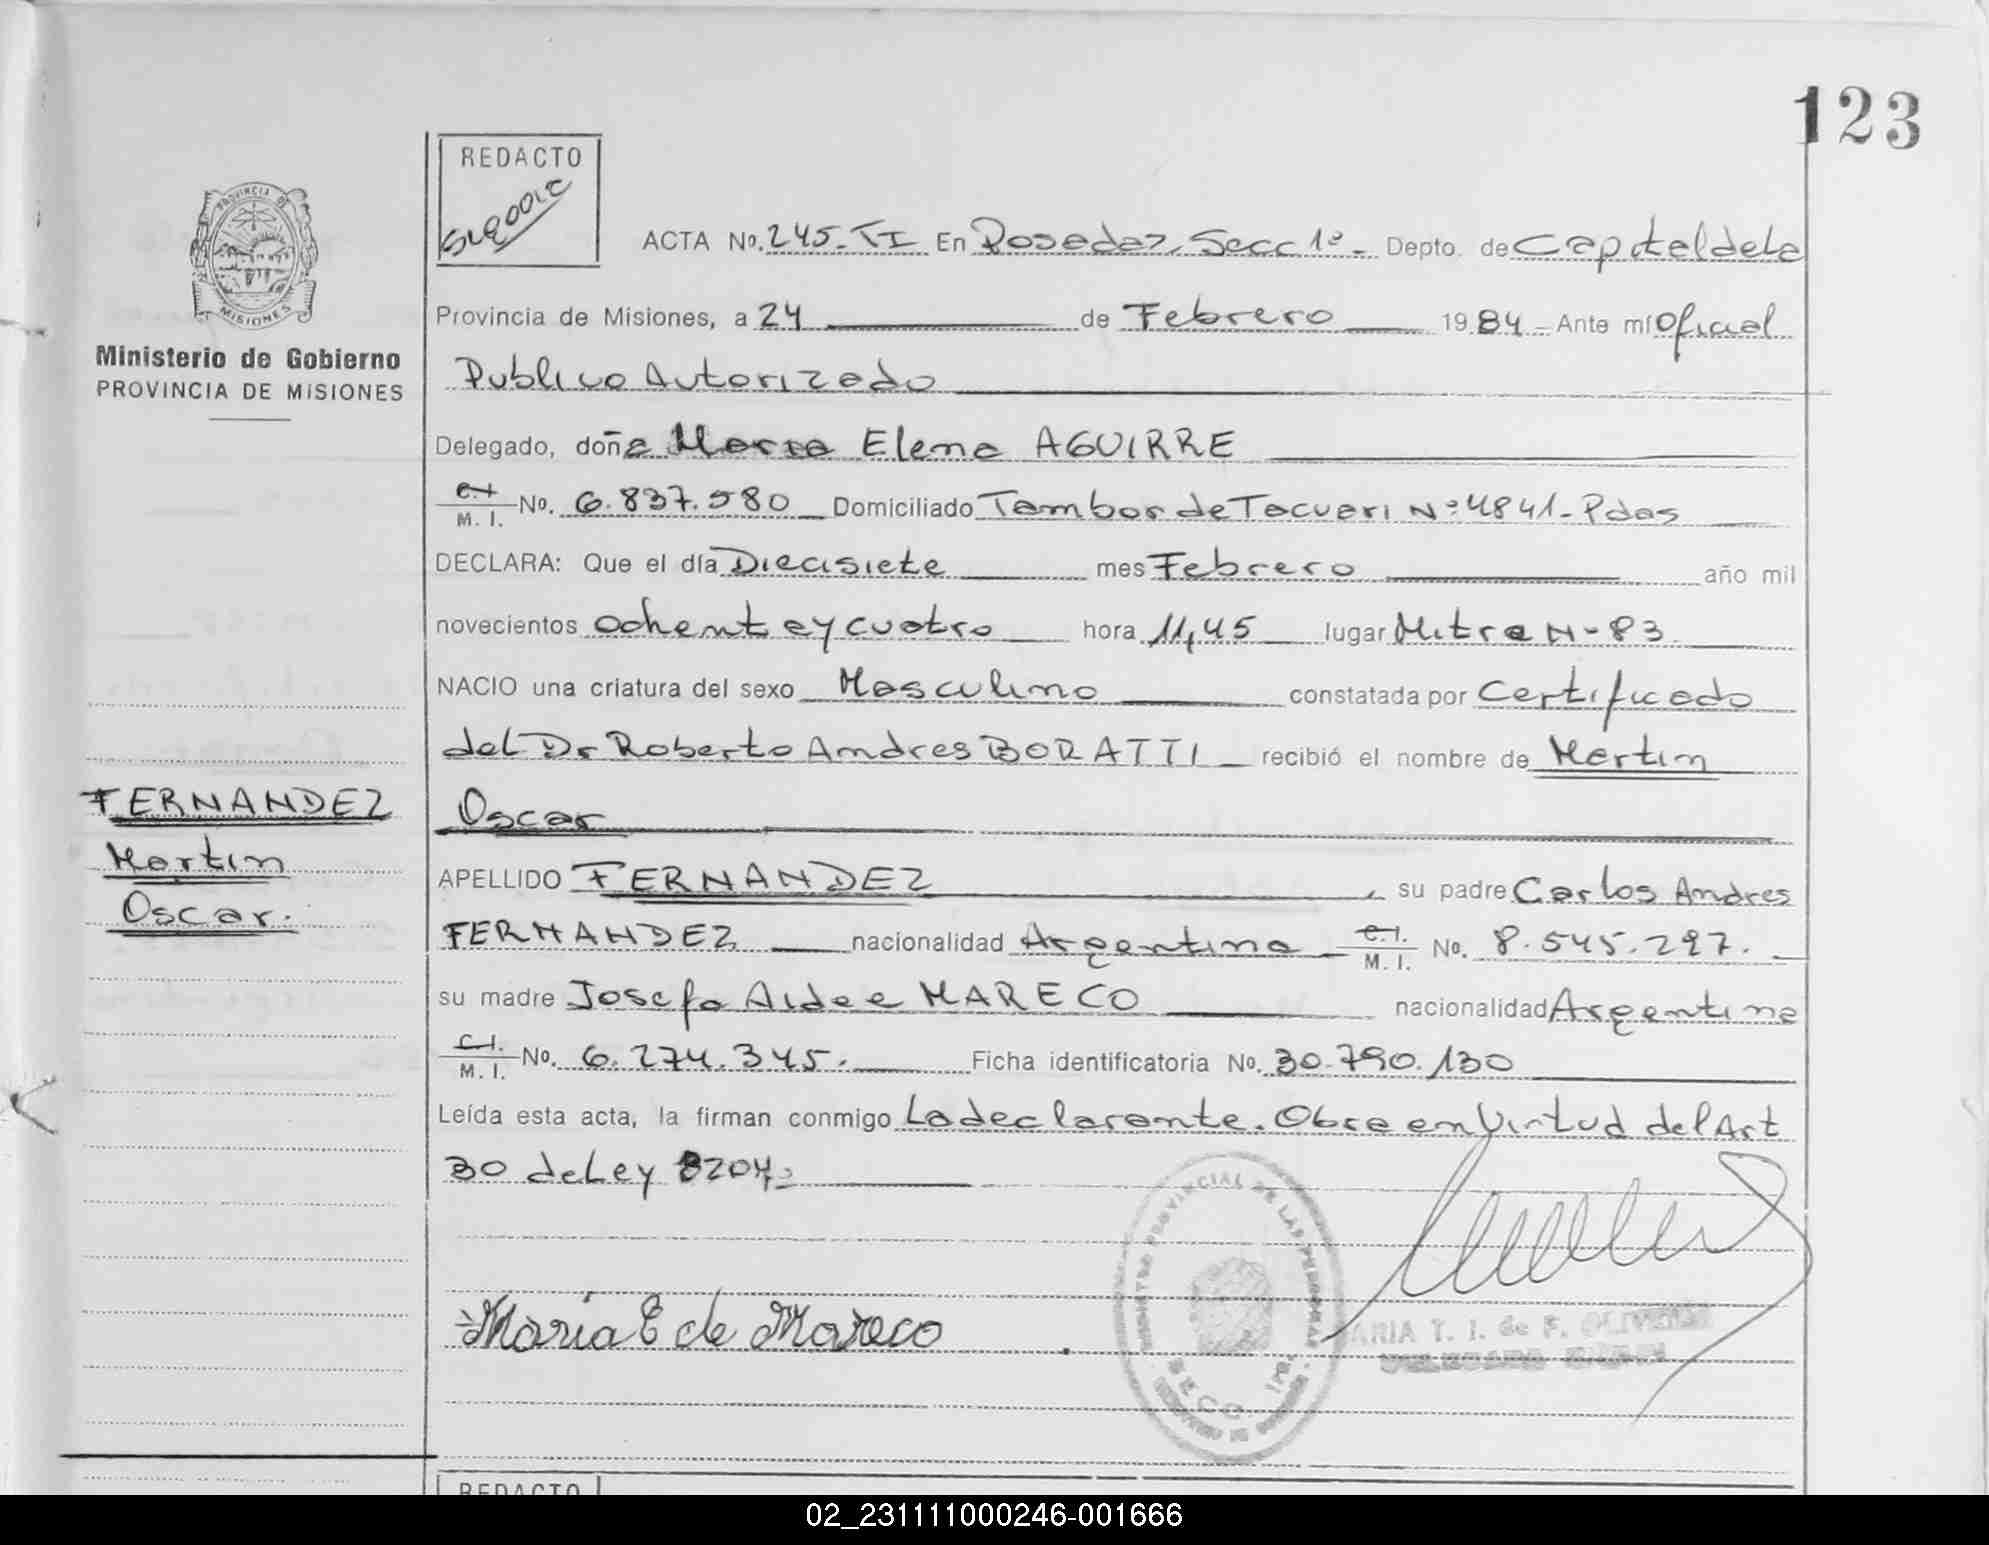 123
REDACTO
PROVINCIA DE
MISIONES
Ministerio de Gobierno
PROVINCIA DE MISIONES
ACTA No. 245-TI En Posadas, Secc 1º- Depto. de Capital de la
Provincia de Misiones, a 24 de Febrero 1984- Ante mí Oficial
Publico Autorizado
Delegado, doña Maria Elena AGUIRRE
C.I. M.I. No. 6.837.580 Domiciliado Tambor de Tacuari Nº 4841- Pdas
DECLARA: Que el día Diecisiete mes Febrero año mil
novecientos ochenta y cuatro hora 11,45 lugar Mitre N-83
NACIO una criatura del sexo Masculino constatada por Certificado
del Dr Roberto Andres BORATTI recibió el nombre de Martin
Oscar
FERNANDEZ
Martin
Oscar.
APELLIDO FERNANDEZ, su padre Carlos Andres
FERNANDEZ nacionalidad Argentina C.I. M.I. No. 8.545.297.
su madre Josefa Aidee MARECO nacionalidad Argentina
C.I. M.I. No. 6.274.345. Ficha identificatoria No. 30.790.130
Leída esta acta, la firman conmigo La declarante. Obra en Virtud del Art
30 de Ley 8204=
REGISTRO PROVINCIAL DE LAS PERSONAS
María E de Mareco
ARIA T. I. de F. OLIVEIRA
REDACTO
02_231111000246-001666